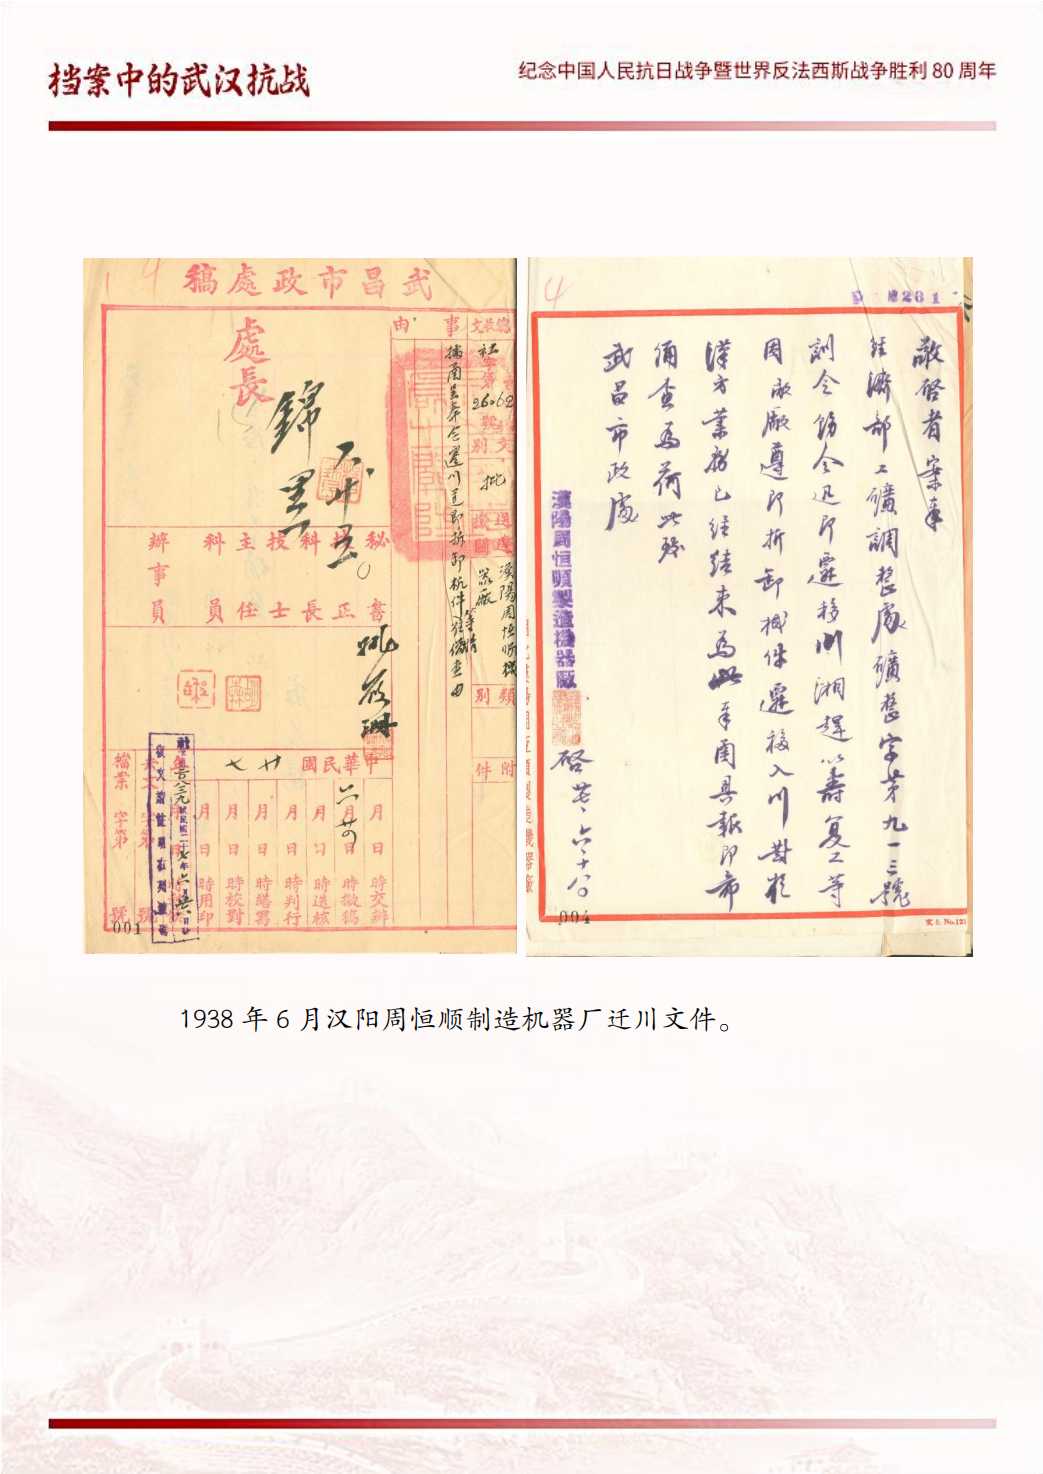 档案中的武汉抗战
纪念中国人民抗日战争暨世界反法西斯战争胜利 80 周年
武昌市政處稿
事由
據函呈奉令遷川逹即拆卸机件等情祈鑒查由
社字第2662號
文別
批
送達機關
漢陽周恒順機器廠
類別
附件
處長
錦
秘書
技正
科長
技士
主任
科員
辦事員
中華民國廿七
六月廿
月日時交辦
月日時擬稿
月日時送核
月日時判行
月日時繕寫
月日時校對
月日時用印
檔案字第號
001
4
201
敬啓者案奉
經濟部工礦調整處礦整字第九一三號
訓令飭令迅即遷移川湘趕以籌复工等
因敝厰遵即拆卸機件遷移入川對於
漢方業務已经结束為此奉函具報即希
備查為荷此致
武昌市政處
漢陽周恒順製造機器廠
啓 廿七、六、十八
004
1938 年 6 月汉阳周恒顺制造机器厂迁川文件。